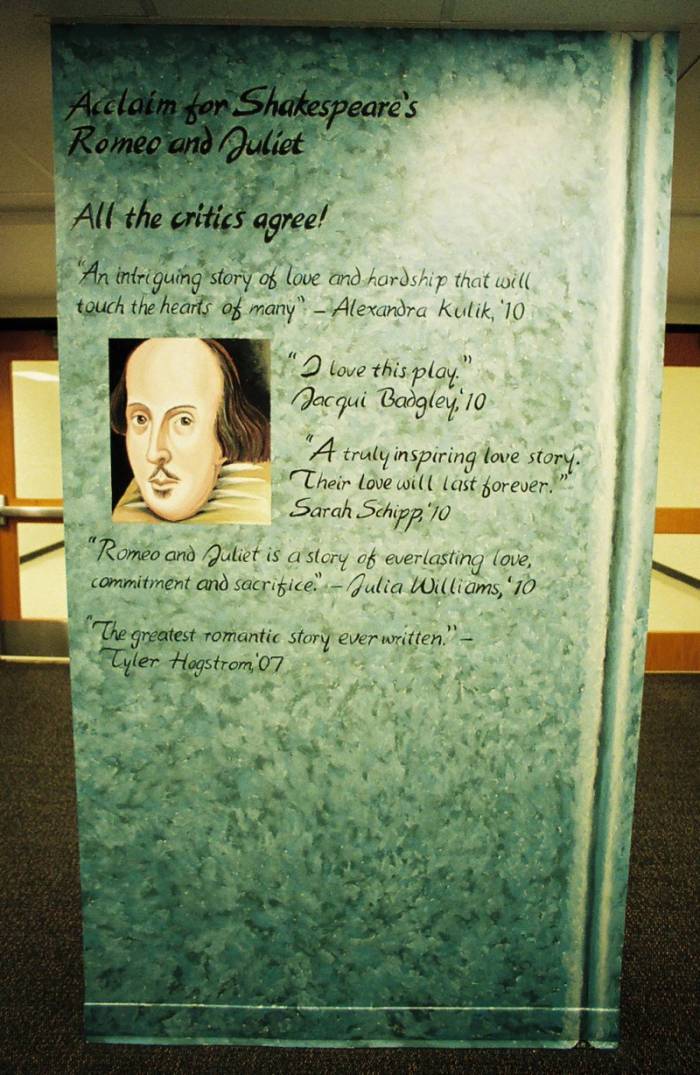 Acclaim for Shakespeare's
Romeo and Juliet
All the critics agree!
"An intriguing story of love and hardship that will
touch the hearts of many" – Alexandra Kulik, '10
"I love this play."
Jacqui Badgley, '10
"A truly inspiring love story.
Their love will last forever."
Sarah Schipp, '10
"Romeo and Juliet is a story of everlasting love,
commitment and sacrifice." – Julia Williams, '10
"The greatest romantic story ever written." –
Tyler Hagstrom, '07